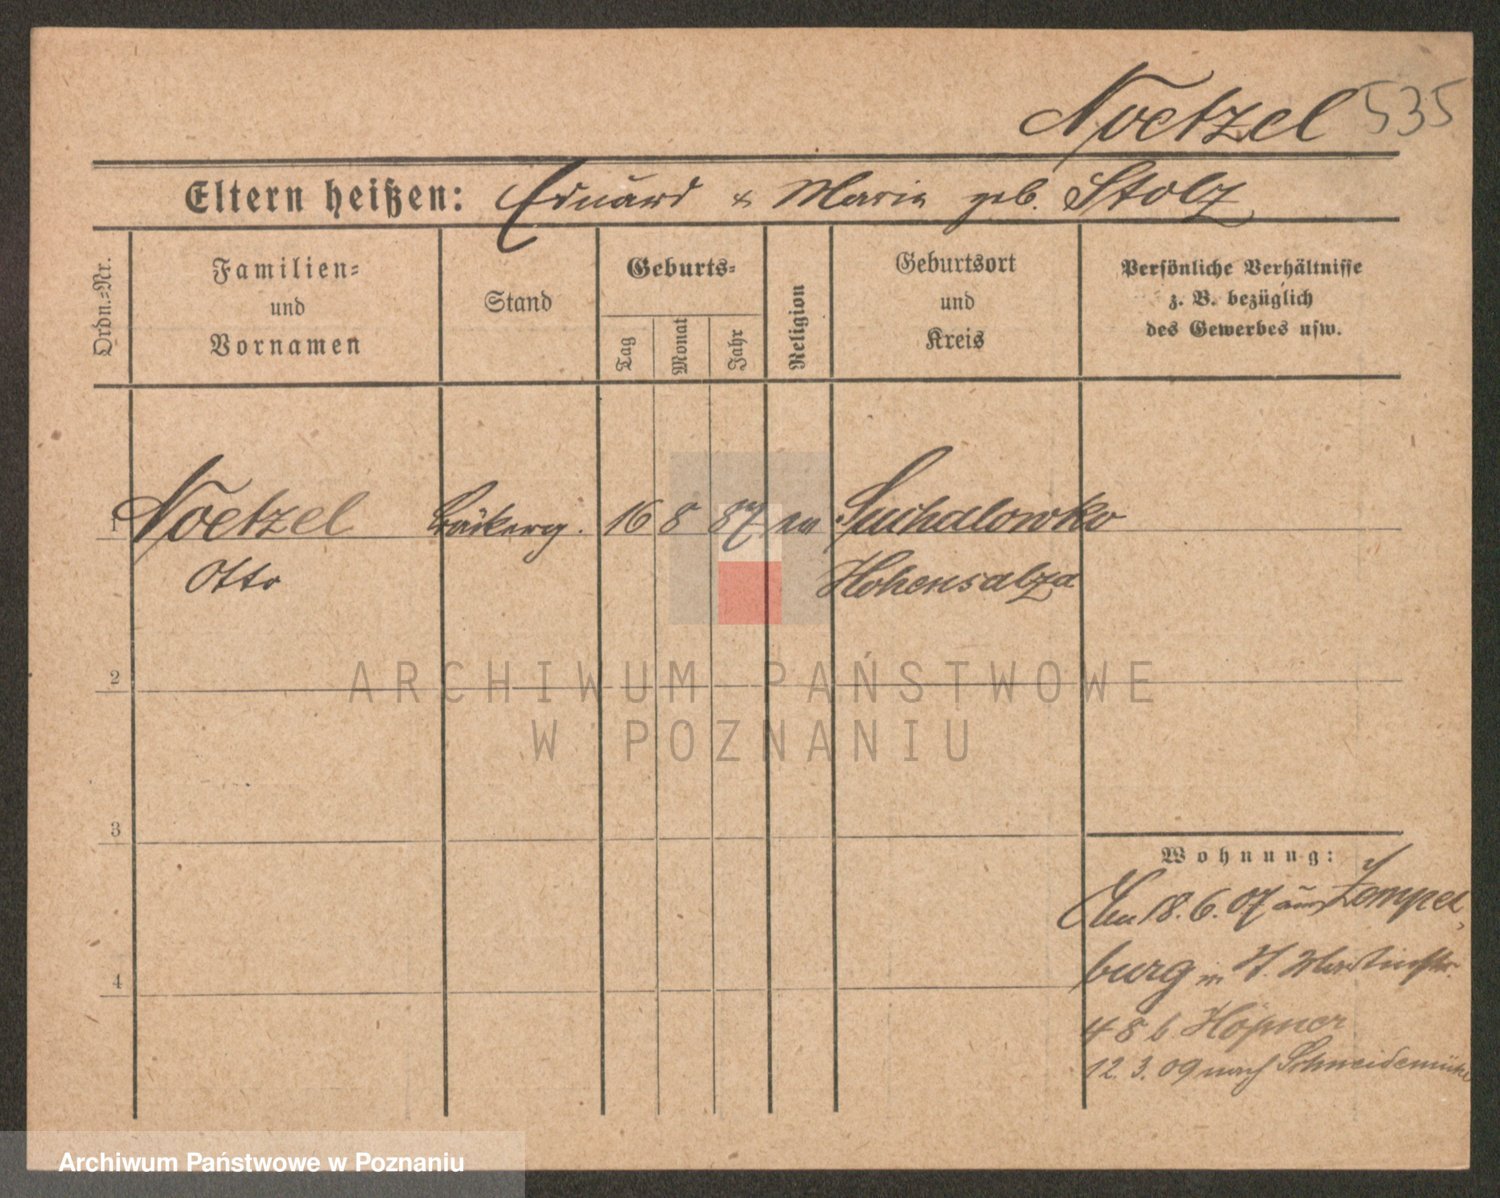 Noetzel 535
Eltern heißen: Eduard & Maria geb. Stolz
Ordn.-Nr.
Familien-
und
Vornamen
Stand
Geburts-
Tag
Monat
Jahr
Religion
Geburtsort
und
Kreis
Persönliche Verhältnisse
z. B. bezüglich
des Gewerbes usw.
1 Noetzel Bäckerg. 16 8 87 ev Suchalowko
Otto Hohensalza
2
3
4
Wohnung:
18. 6. 07 aus Zempel-
burg in Martinstr.
48 b Höpner
12. 3. 09 nach Schneidemühl
ARCHIWUM PAŃSTWOWE
W POZNANIU
Archiwum Państwowe w Poznaniu